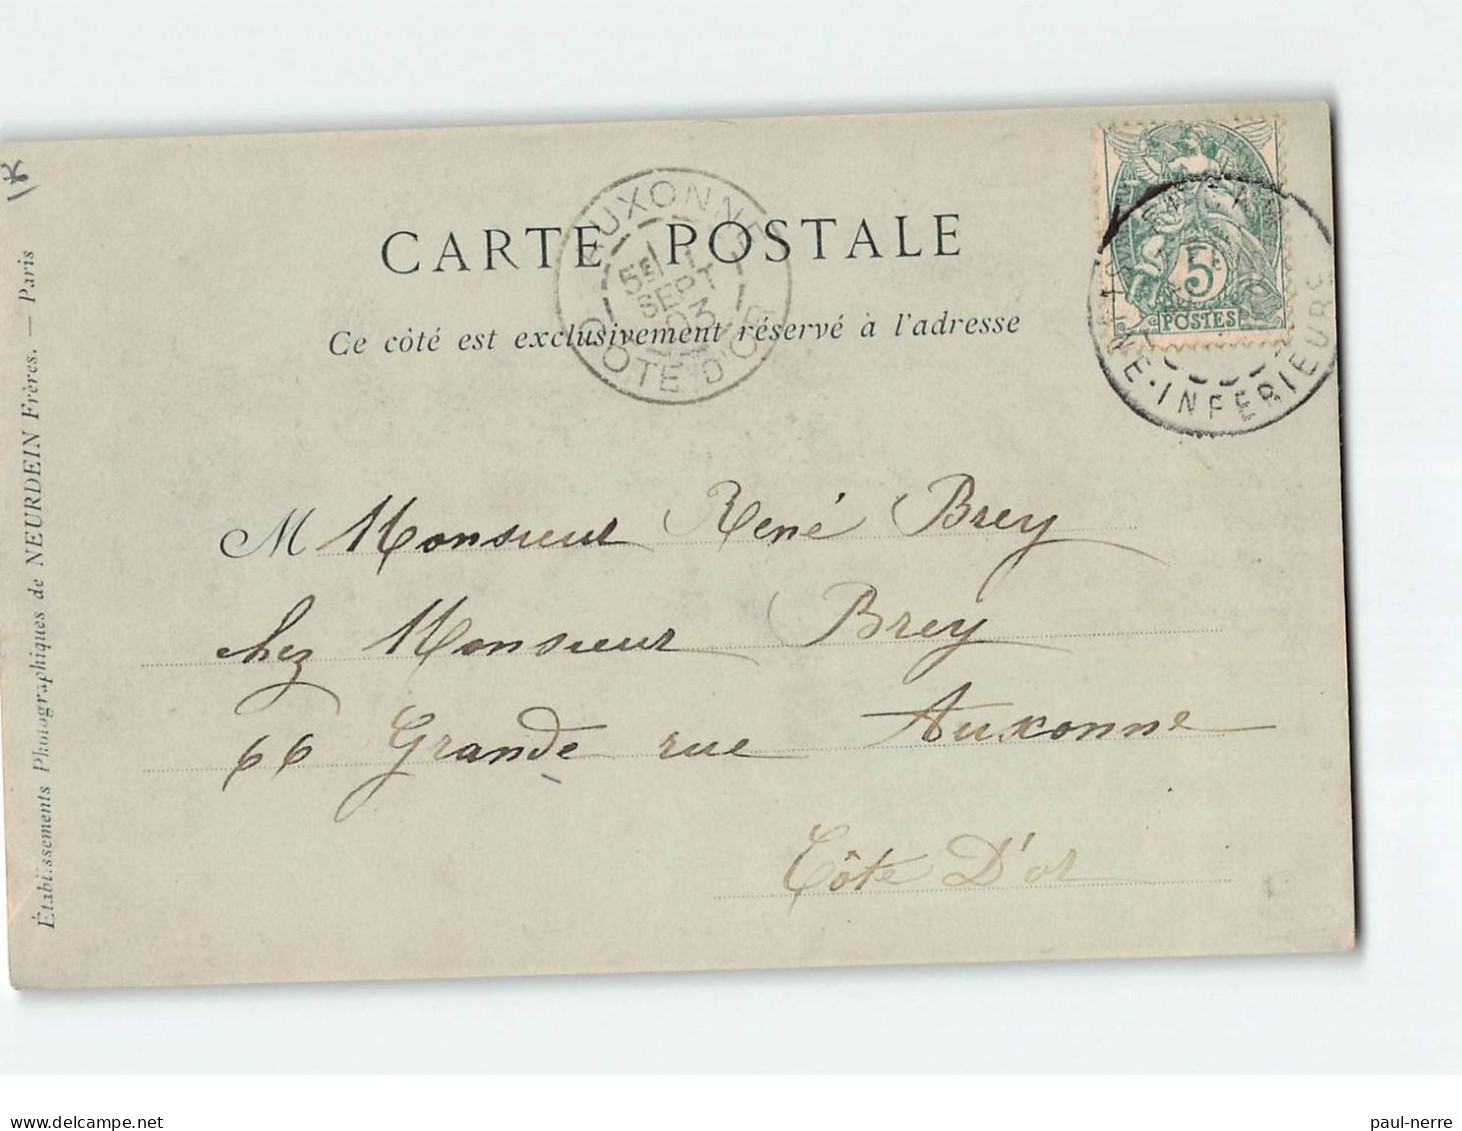 CARTE POSTALE
Ce côté est exclusivement réservé à l'adresse
AUXONNE
SEPT
03
CÔTE D'OR
5
POSTES
INFERIEURE
M Monsieur René Brey
chez Monsieur Brey
66 Grande rue Auxonne
Côte D'or
Établissements Photographiques de NEURDEIN Frères. — Paris
paul-nerre